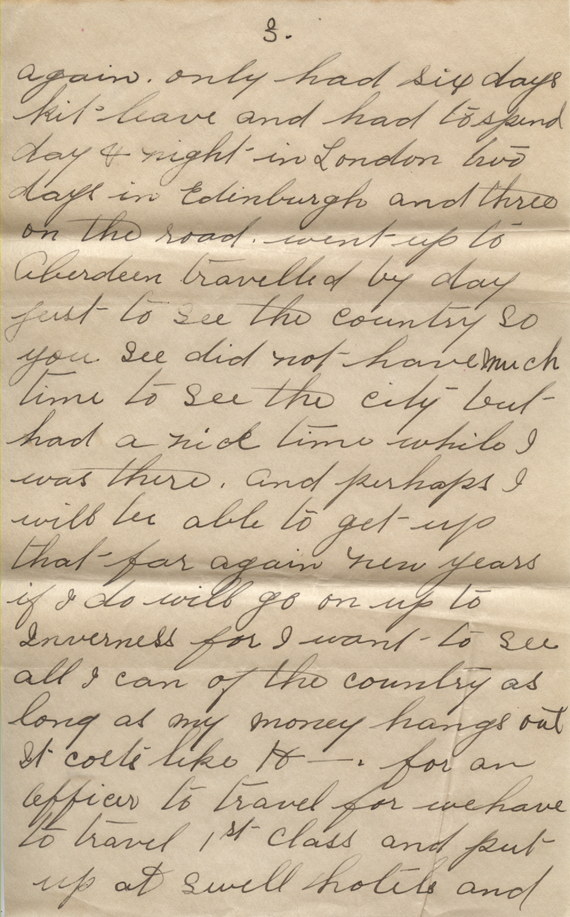 3.
again. only had six days
kit leave and had to spend
day & night in London two
days in Edinburgh and three
on the road. went up to
Aberdeen travelled by day
just to see the country so
you see did not have much
time to see the city but
had a nice time while I
was there. and perhaps I
will be able to get up
that far again new years
if I do will go on up to
Inverness for I want to see
all I can of the country as
long as my money hangs out
It costs like H—. for an
officer to travel for we have
to travel 1st class and put
up at swell hotels and